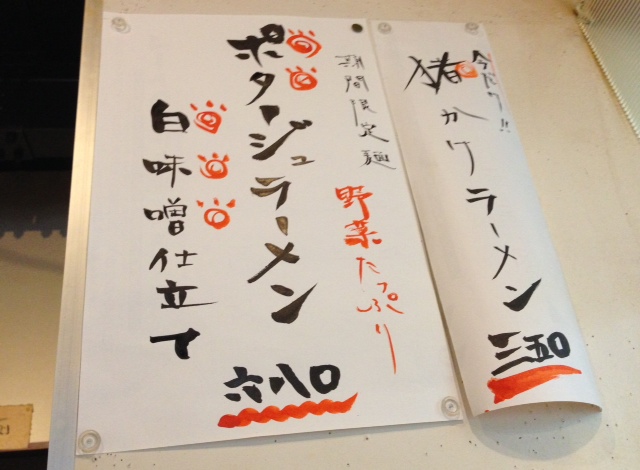 今だけ!!
猪かけラーメン
三五〇
期間限定麺
野菜たっぷり
ポタージュラーメン
白味噌仕立て
六八〇